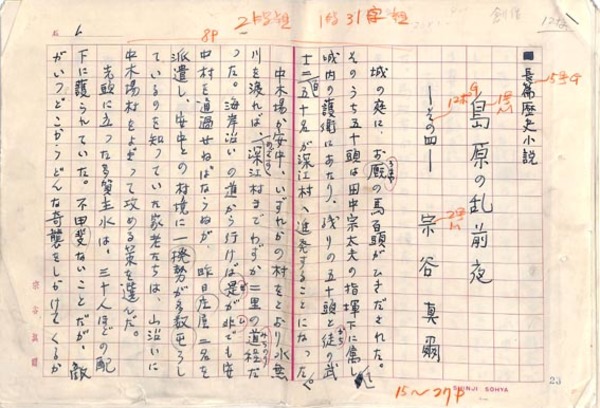 創作
12枚
2段組 1段31字組
8P
■長篇歴史小説
15号G
島原の乱前夜
―その四―
12ホG
宗谷真爾
2号M
城の庭に、お厩の馬百頭がひきだされた。
うまや
そのうち五十頭は田中宗太夫の指揮下に属し
城内の護衛にあたり、残りの五十頭と徒の武
かち
士二百五十名が深江村へ進発することになった。
中木場か安中、いずれかの村をとおり水無
川を渡れば、深江村までわずか二里の道程だ
った。海岸沿いの道から行けば是が非でも安
中村を通過せねばならぬが、昨日庄屋二名を
派遣し、安中との村境に一揆勢が多数屯ろし
ているのを知っていた家老たちは、山沿いに
中木場村をよぎって攻める策を選んだ。
先頭に立った多賀主水は、三十人ほどの配
下に護られていた。不甲斐ないことだが、敵
がいつどこからどんな奇襲をしかけてくるか
15〜27P
SHINJI SOHYA
23
宗谷真爾